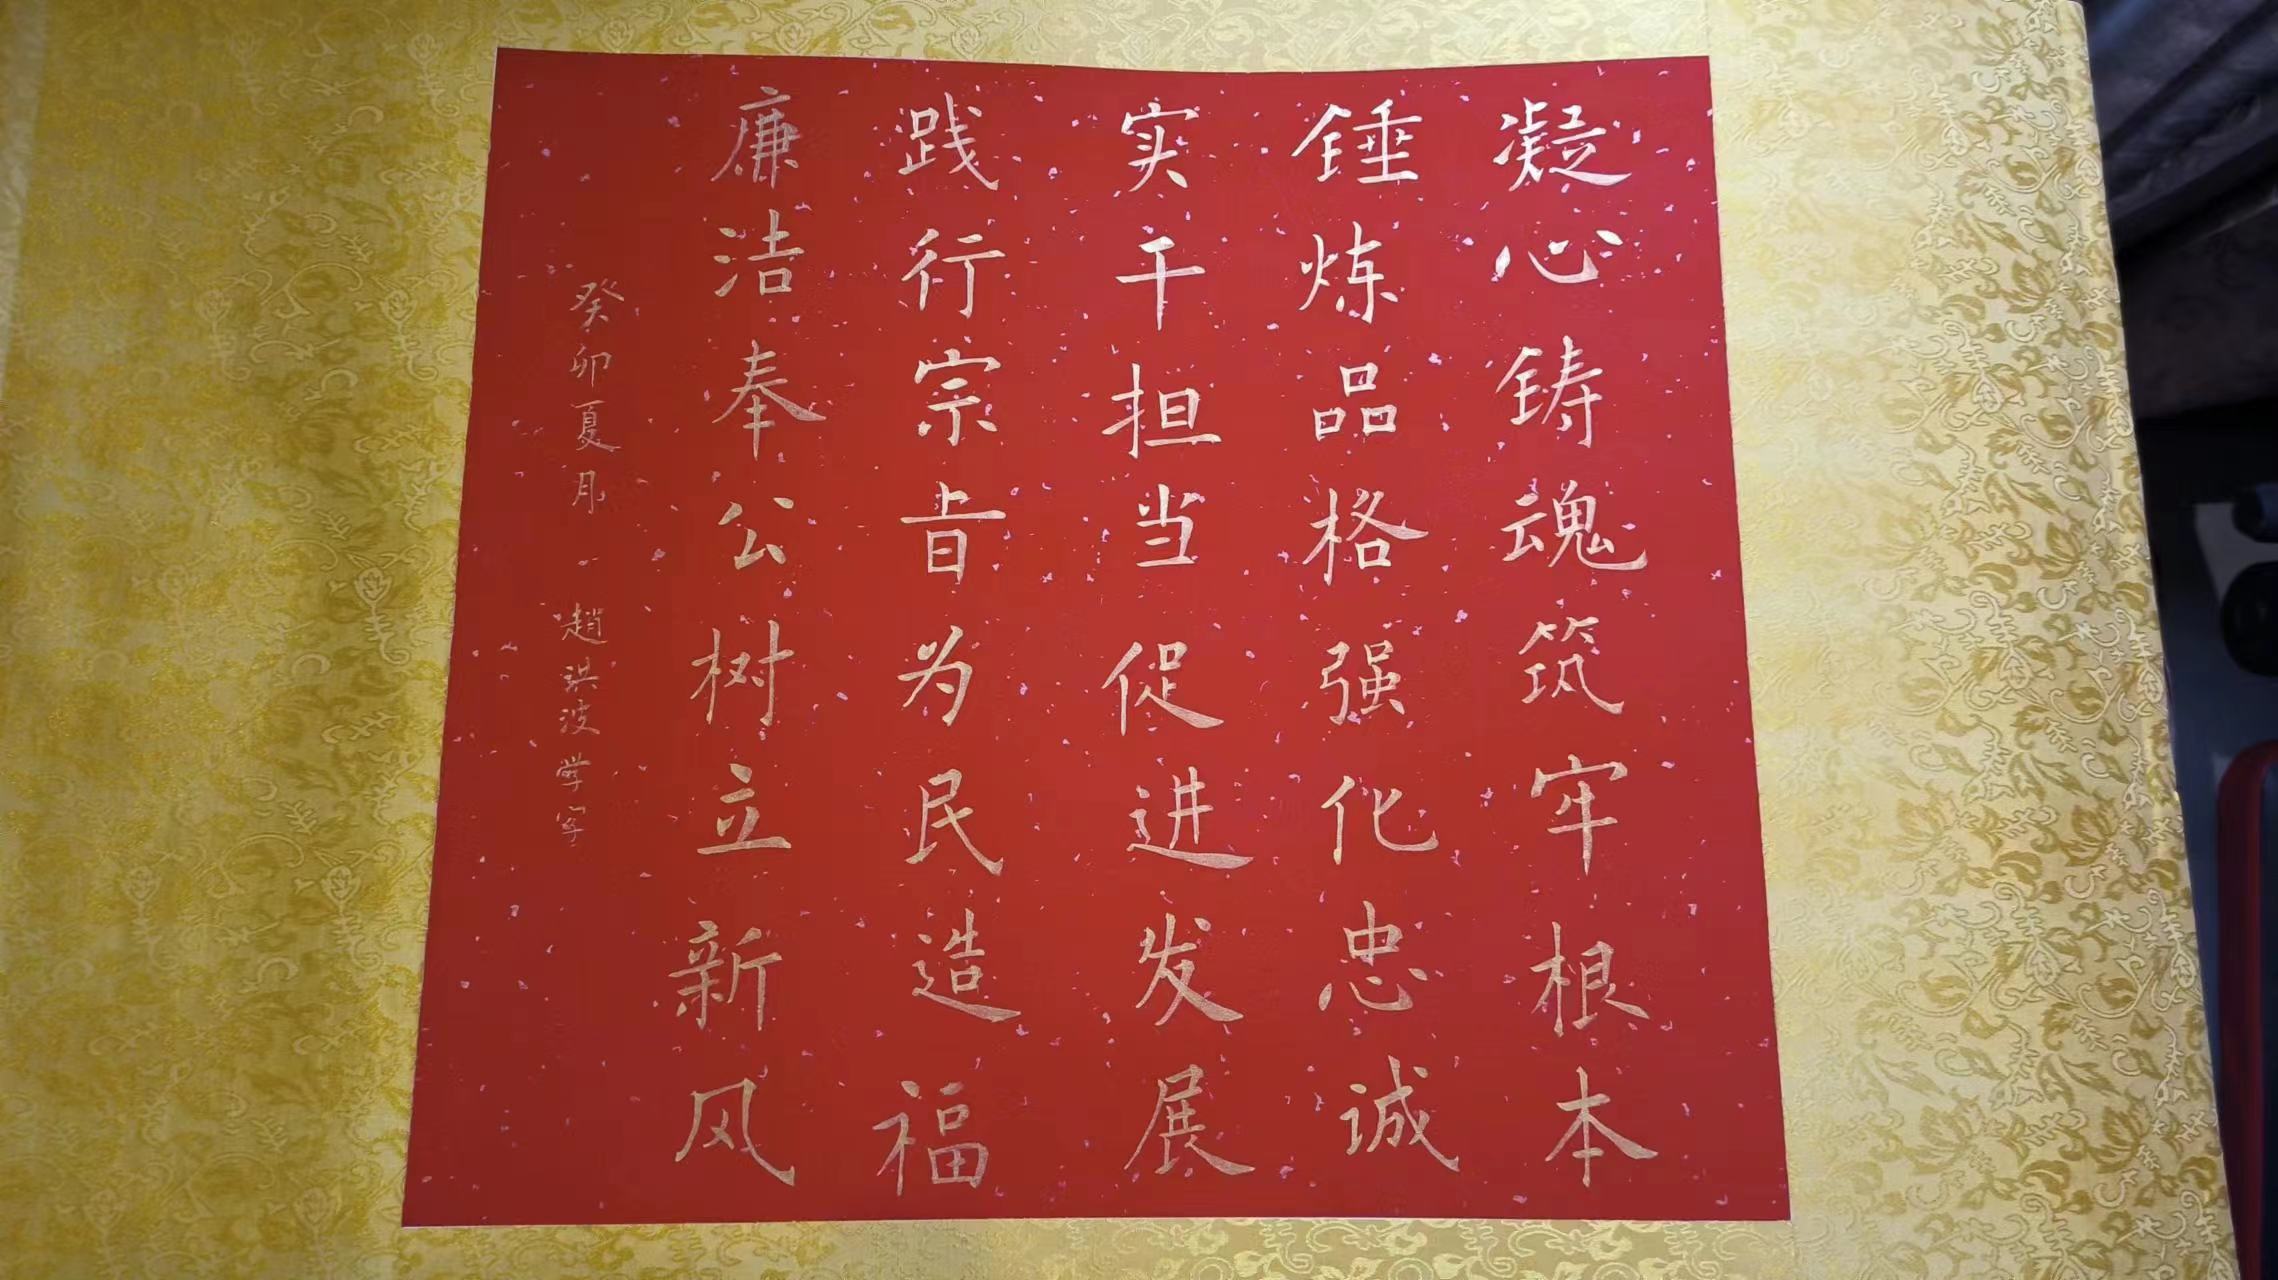 凝心铸魂筑牢根本
锤炼品格强化忠诚
实干担当促进发展
践行宗旨为民造福
廉洁奉公树立新风
癸卯夏月 趙洪波學字